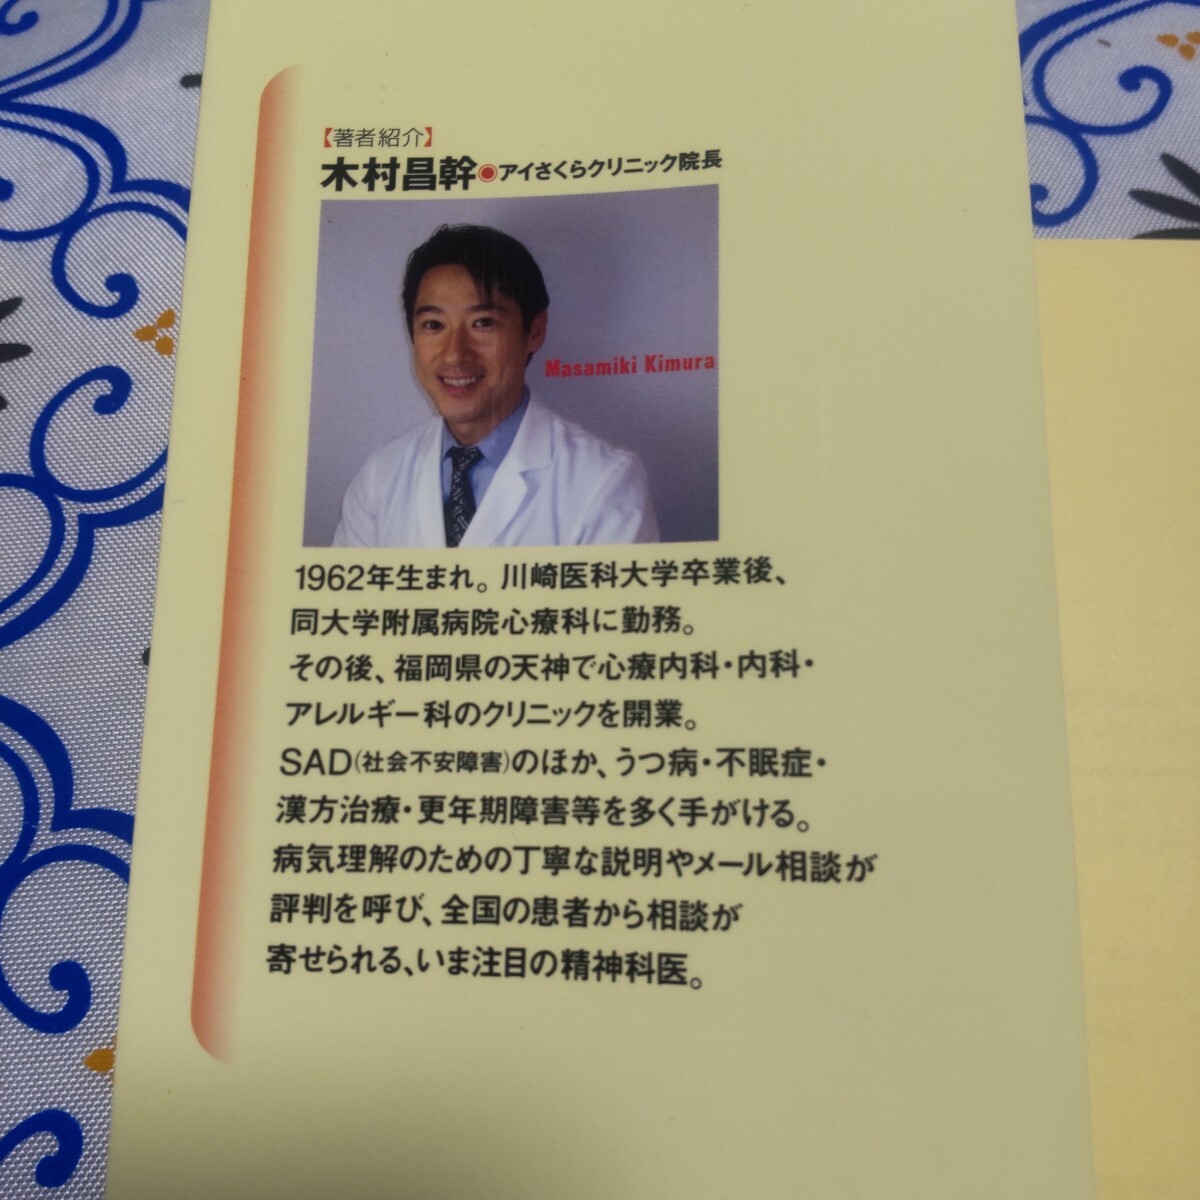 【著者紹介】
木村昌幹◉アイさくらクリニック院長
Masamiki Kimura
1962年生まれ。川崎医科大学卒業後、
同大学附属病院心療科に勤務。
その後、福岡県の天神で心療内科・内科・
アレルギー科のクリニックを開業。
SAD(社会不安障害)のほか、うつ病・不眠症・
漢方治療・更年期障害等を多く手がける。
病気理解のための丁寧な説明やメール相談が
評判を呼び、全国の患者から相談が
寄せられる、いま注目の精神科医。